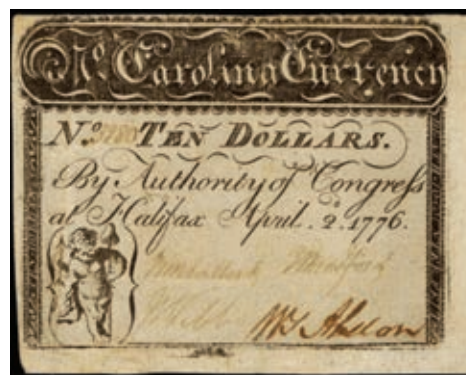 No. Carolina Currency
No. TEN DOLLARS.
By Authority of Congress
at Halifax April. 2.d 1776.